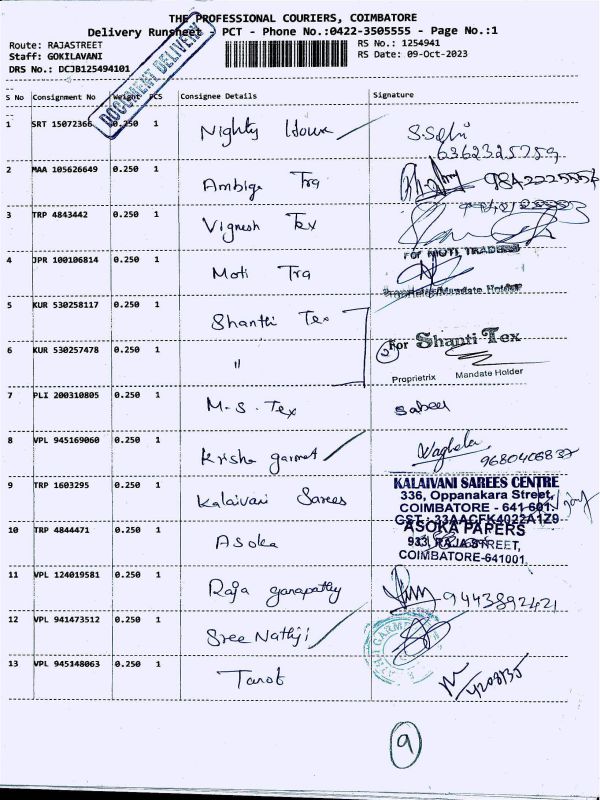 THE PROFESSIONAL COURIERS, COIMBATORE
Delivery Runsheet - PCT - Phone No.:0422-3505555 - Page No.:1
Route: RAJASTREET
Staff: GOKILAVANI
DRS No.: DCJB125494101
RS No.: 1254941
RS Date: 09-Oct-2023
DOCUMENT DELIVERY
S No Consignment No Weight PCS Consignee Details Signature
1 SRT 15072366 0.250 1 Nighty House
6362325759
2 MAA 105626649 0.250 1 Ambiga Tra
3 TRP 4843442 0.250 1 Vignesh Tex
4 JPR 100106814 0.250 1 Moti Tra
For MOTI TRADERS
Proprietrix/Mandate Holder
5 KUR 530258117 0.250 1 Shanthi Tex
6 KUR 530257478 0.250 1 "
For Shanti Tex
Proprietrix Mandate Holder
7 PLI 200310805 0.250 1 M.S. Tex
8 VPL 945169060 0.250 1 Krisha garmet Vaghela
9680406837
9 TRP 1603295 0.250 1 Kalaivani Sarees
KALAIVANI SAREES CENTRE
336, Oppanakara Street,
COIMBATORE - 641 601.
GST - 33AACFK4022A1Z9
10 TRP 4844471 0.250 1 Asoka
ASOKA PAPERS
933, RAJA STREET,
COIMBATORE-641001.
11 VPL 124019581 0.250 1 Raja ganapathy 9443892421
12 VPL 941473512 0.250 1 Sree Nathji
13 VPL 945148063 0.250 1 Tarot
9